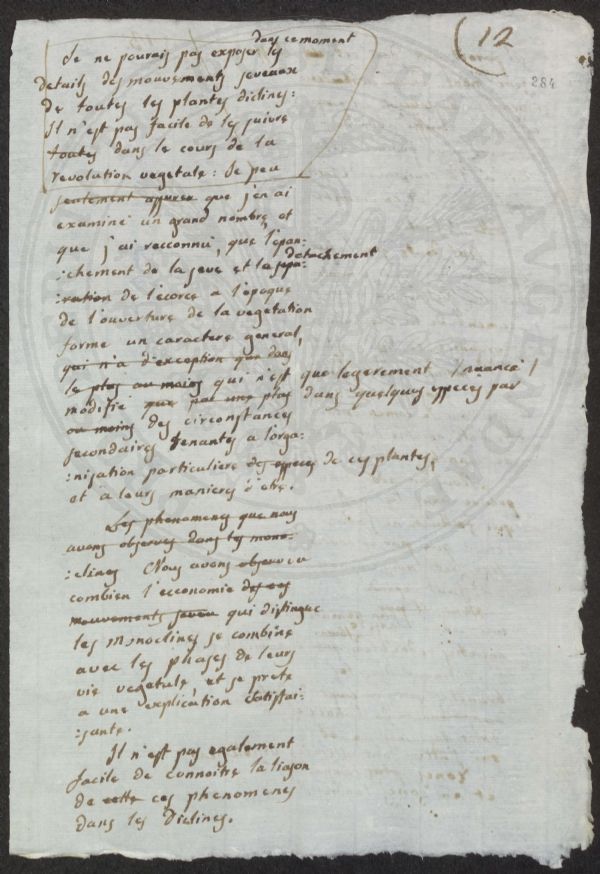 (12
284
dans ce moment
Je ne pourais pas exposer les
details des mouvements seveaux
de toutes les plantes diclines:
Il n'est pas facile de les suivre
toutes dans le cours de la
revolution vegetale: Je peu
seulement assurer que j'en ai
examiné un grand nombre, et
que j'ai recconnu, que l'épan:
:chement de la seve et la sepa: detachement
:ration de l'écorce a l'époque
de l'ouverture de la vegetation
forme un caractere general,
qui n'a d'exception que dans
le plus au moins qui n'est que legerement / nuancé /
modifié que par une plus dans quelques especes par
ou moins des circonstances
secondaires tenantes a l'orga:
:nisation particuliere des especes de ces plantes,
et a leurs manieres d'etre.
Les phenomenes que nous
avons observés dans les mono:
:clines Nous avons observé vu
combien l'economie des ces
mouvements seveu qui distingue
les Monoclines se combine
avec les phases de leurs
vie vegetale et se prete
a une explication satisfai:
:sante.
Il n'est pas egalement
facile de connoitre la liason
de cette ces phenomenes
dans les Diclines.